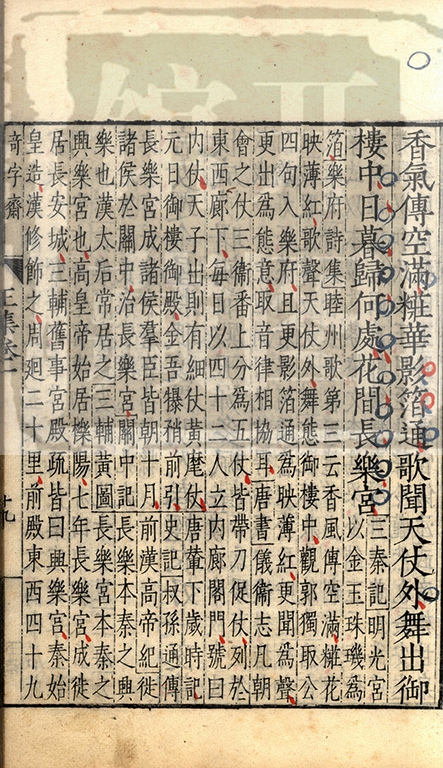 香氣傳空滿粧華影箔通歌聞天仗外舞出御
樓中日暮歸何處花間長樂宮三秦記明光宮
以金玉珠璣為
箔樂府詩集睦州歌第三云香風傳空滿粧花
映薄紅歌聲天仗外舞態御樓中觀郭獨取公
四句入樂府且更影箔通為映薄紅更聞為聲
更出為態意取音律相協耳唐書儀衛志凡朝
會之仗三衛番上分為五仗皆帶刀促仗列於
東西廊下每日以四十二人立內廊閤門號曰
內仗天子出則有細仗黃麾仗唐輦下歲時記
元日御樓御殿金吾犦矟前引史記叔孫通傳
長樂宮成諸侯羣臣皆朝十月前漢高帝紀徙
諸侯於關中治長樂宮關中記長樂本秦之興
樂也漢太后常居之三輔黃圖長樂宮本秦之
興樂宮也高皇帝始居櫟陽七年長樂宮成徙
居長安城三輔舊事宮殿疏皆曰興樂宮秦始
皇造漢修飾之周廻二十里前殿東西四十九
奇字齋
王集卷一
廿九